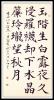 玉階生白露夜久
侵羅襪却下水晶
簾玲瓏望秋月